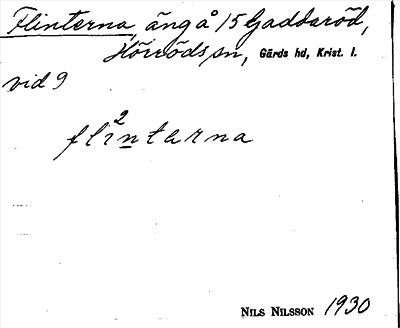 Flinterna, äng å 15 Gaddaröd,
Hörröds sn, Gärds hd, Krist. l.
vid 9
fli²nterna
NILS NILSSON 1930